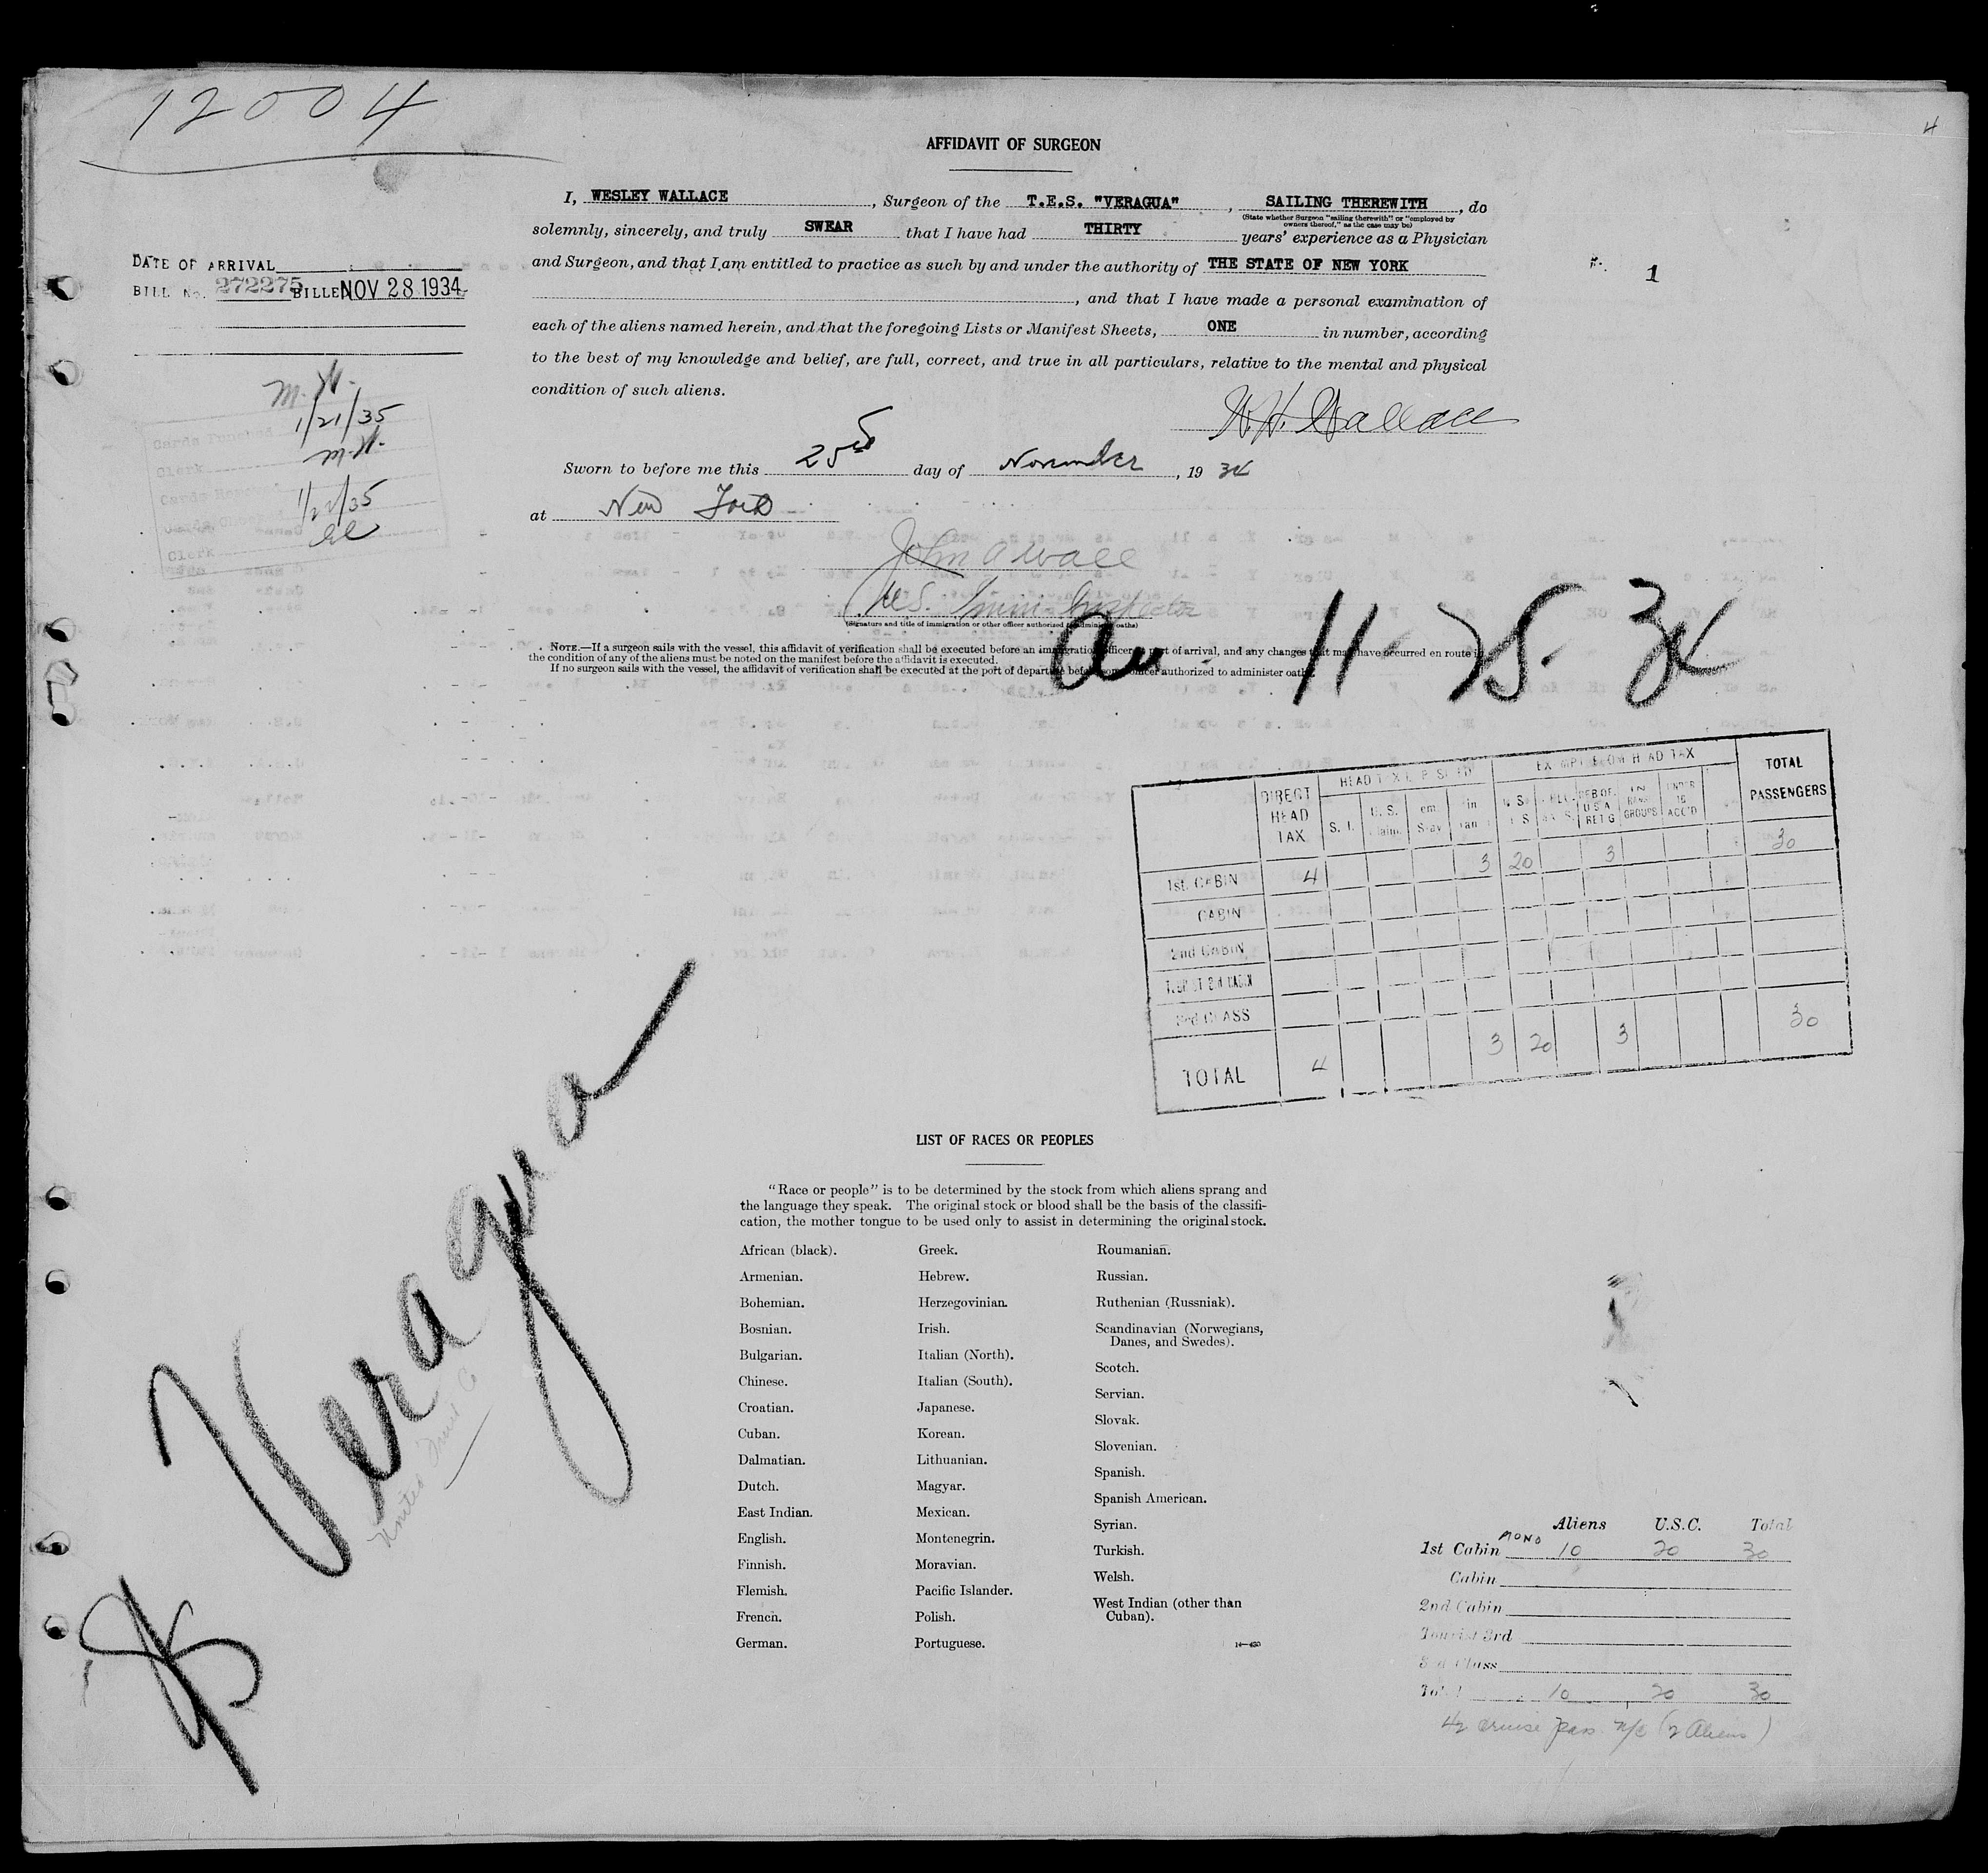 12004
4
AFFIDAVIT OF SURGEON
I, WESLEY WALLACE, Surgeon of the T.E.S. "VERAGUA", SAILING THEREWITH, do
(State whether Surgeon "sailing therewith" or "employed by owners thereof," as the case may be)
solemnly, sincerely, and truly SWEAR that I have had THIRTY years' experience as a Physician
and Surgeon, and that I am entitled to practice as such by and under the authority of THE STATE OF NEW YORK
, and that I have made a personal examination of
each of the aliens named herein, and that the foregoing Lists or Manifest Sheets, ONE in number, according
to the best of my knowledge and belief, are full, correct, and true in all particulars, relative to the mental and physical
condition of such aliens.
W. H. Wallace
Sworn to before me this 25th day of November, 1934
at New York
John A Wall
U.S. Immi. Inspector
(Signature and title of immigration or other officer authorized to administer oaths)
NOTE.—If a surgeon sails with the vessel, this affidavit of verification shall be executed before an immigration officer at port of arrival, and any changes that may have occurred en route in
the condition of any of the aliens must be noted on the manifest before the affidavit is executed.
If no surgeon sails with the vessel, the affidavit of verification shall be executed at the port of departure before some officer authorized to administer oaths.
DATE OF ARRIVAL
BILL No. 272275 BILLED NOV 28 1934
1
M.H.
Cards Punched 1/21/35
Clerk M.H.
1/22/35
Clerk
11-25-34
DIRECT HEAD TAX
TOTAL PASSENGERS
1st. CABIN 4 3 20 3 30
CABIN
2nd CABIN
3rd CLASS
TOTAL 4 3 20 3 30
Veragua
United Fruit Co
LIST OF RACES OR PEOPLES
"Race or people" is to be determined by the stock from which aliens sprang and
the language they speak. The original stock or blood shall be the basis of the classifi-
cation, the mother tongue to be used only to assist in determining the original stock.
African (black).
Armenian.
Bohemian.
Bosnian.
Bulgarian.
Chinese.
Croatian.
Cuban.
Dalmatian.
Dutch.
East Indian.
English.
Finnish.
Flemish.
French.
German.
Greek.
Hebrew.
Herzegovinian.
Irish.
Italian (North).
Italian (South).
Japanese.
Korean.
Lithuanian.
Magyar.
Mexican.
Montenegrin.
Moravian.
Pacific Islander.
Polish.
Portuguese.
Roumanian.
Russian.
Ruthenian (Russniak).
Scandinavian (Norwegians,
Danes, and Swedes).
Scotch.
Servian.
Slovak.
Slovenian.
Spanish.
Spanish American.
Syrian.
Turkish.
Welsh.
West Indian (other than
Cuban).
Aliens U.S.C. Total
1st Cabin MONO 10 20 30
Cabin
2nd Cabin
Tourist 3rd
3rd Class
Total 10 20 30
42 cruise pass n/c (2 Aliens)